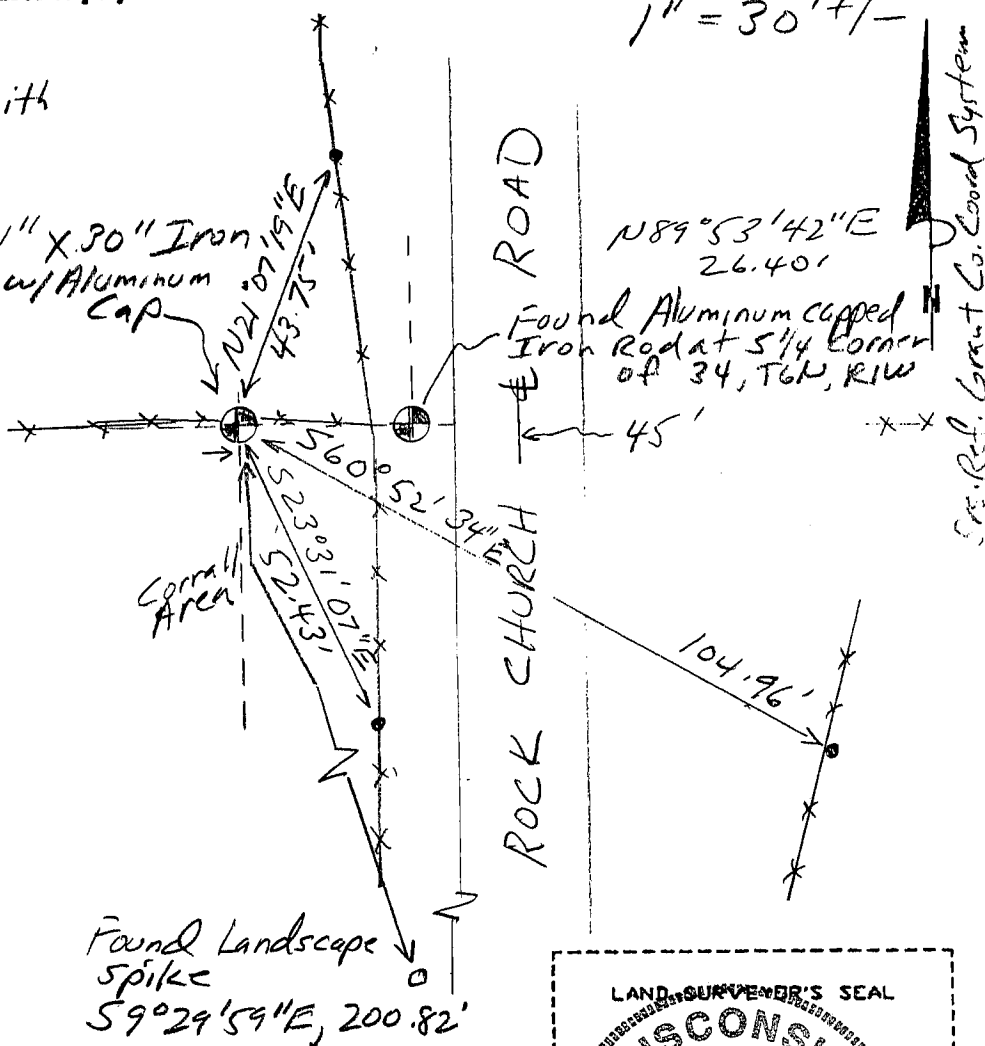 1" = 30' +/-
ith
1" X 30" Iron
w/ Aluminum
Cap
N21°07'19"E
43.75'
ROCK CHURCH ℄ ROAD
N89°53'42"E
26.40'
Found Aluminum capped
Iron Rod at S 1/4 Corner
of 34, T6N, R1W
45'
N
Grant Co. Coord System
S60°52'34"E
104.96'
S23°31'07"E
52.43'
Corrall
Area
Found Landscape
Spike
S9°29'59"E, 200.82'
LAND SURVEYOR'S SEAL
WISCONSI